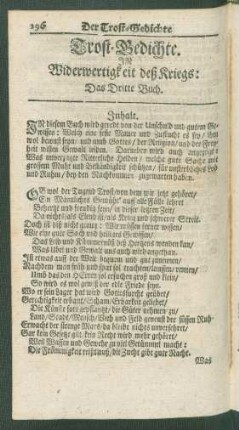 296 Der Trost-Gedichte
Trost-Gedichte.
IN
Widerwertigkeit deß Kriegs:
Das Dritte Buch.
Inhalt.
IN diesem Buch wird geredt von der Unschuld und gutem Ge-
wissen: Welch eine feste Mauer und Zuflucht es sey / dem
der Religion / und der Frey-
heit willen Gewalt leiden. Darneben wird auch angezogen
Was unverzagte Ritterliche Helden / welche gute Sache mit
grossem Muth und Beständigkeit schützen / für unsterbliches Lob
und Ruhm / bey den Nachkommen zugewarten haben.
OB wol der Tugend Trost / von dem wir jetzt gehöret /
Ein Männliches Gemüthe auff alle Fälle lehret
Behertzt und freudig seyn / in dieser letzten Zeit /
Da nichts als Elend ist und Krieg und schwerer Streit.
Doch ist diß nicht genug: Wir müssen ferner wissen /
Wie eine gute Sach und heiliges Gewissen /
Das Leib und Künmernuß deß Hertzens wenden kan /
Was übel und Gewalt uns auch wird angethan.
Ist etwas auff der Welt bequem und gut zunennen /
Nachdem wir früh und spat sol trachten / lauffen / rennen /
Und das den HErren sol ersuchen groß und klein /
So wird es wol gewiß der edle Friede seyn.
Wo er sein Lager hat wird Gottesfurcht geübet /
Gerechtigkeit erkant / Scham / Erbarkeit geliebet /
Die Künste fort gepflantzt / die Güter nehmen zu /
Land / Stadt / Mensch / Vieh und Feld geneust der süssen Ruh
Erwacht der strenge Mars / da bleibt nichts unversehret /
Gar kein Gesetze gilt / kein Recht wird mehr gehöret /
Weil Waffen und Gewehr zu viel Getümmel macht:
Die Frömmigkeit reist auß / die Zucht gibt gute Nacht.
Was